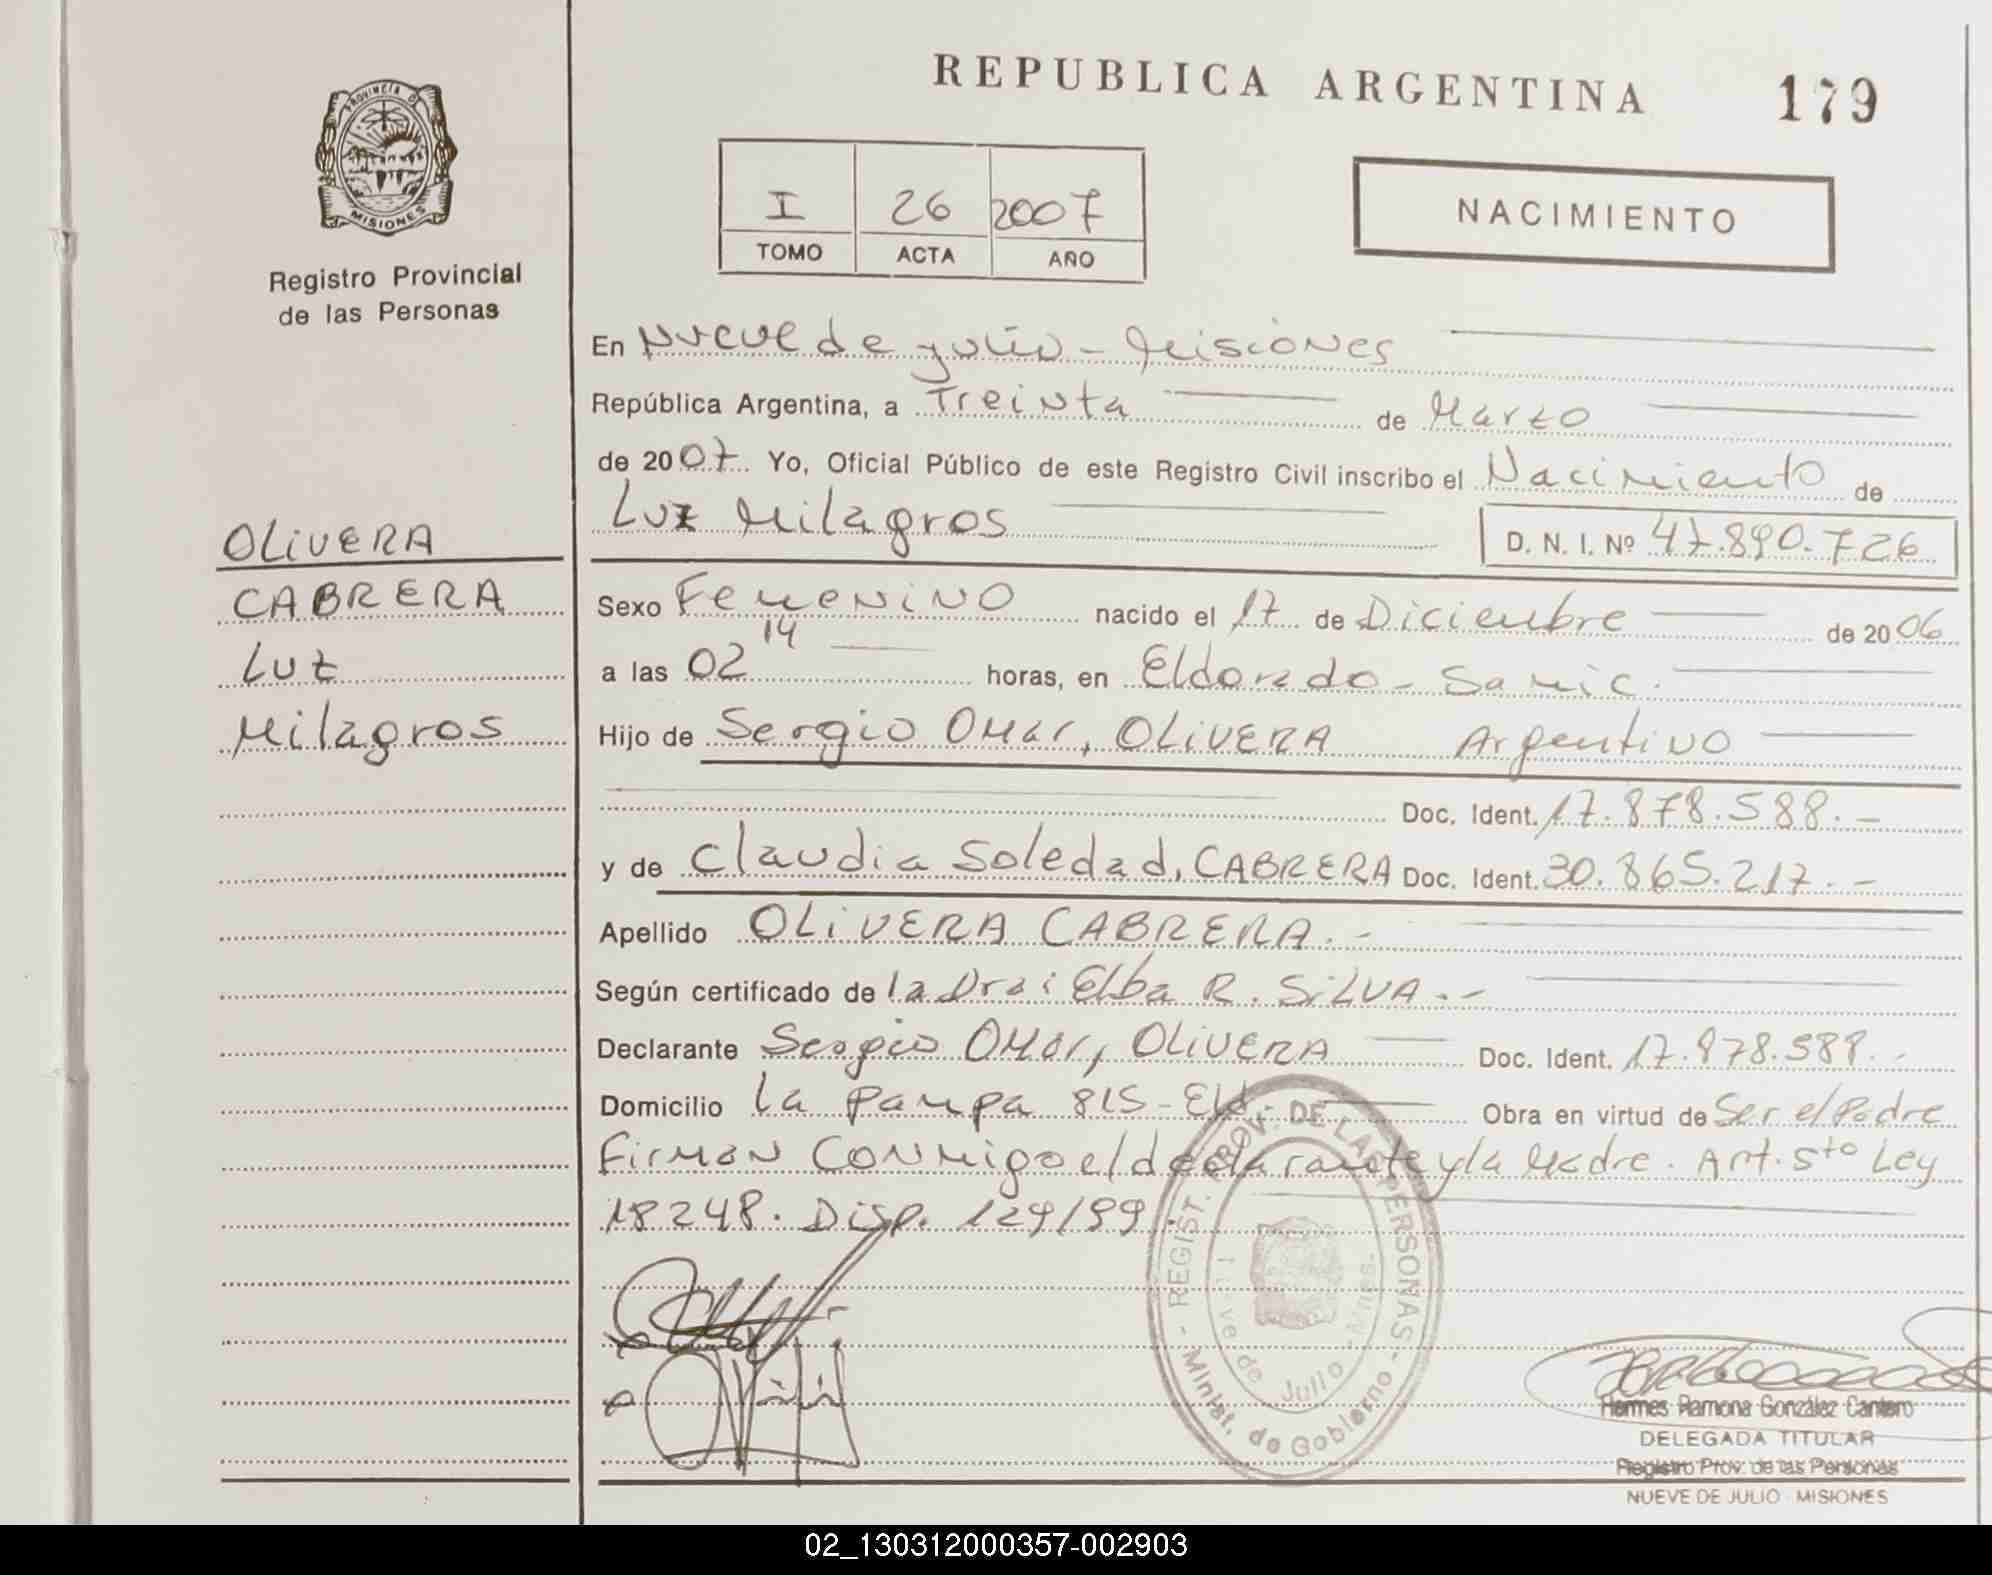 REPUBLICA ARGENTINA 179
PROVINCIA DE
MISIONES
Registro Provincial
de las Personas
I 26 2007
TOMO ACTA AÑO
NACIMIENTO
En Nueve de julio - Misiones
República Argentina, a Treinta de Marzo
de 2007. Yo, Oficial Público de este Registro Civil inscribo el Nacimiento de
Luz Milagros
D. N. I. Nº 47.890.726
OLIVERA
CABRERA
Luz
Milagros
Sexo Femenino nacido el 17 de Diciembre de 2006
a las 02 14 horas, en Eldorado - Samic.
Hijo de Sergio Omar, OLIVERA Argentino
Doc. Ident. 17.878.588.-
y de Claudia Soledad, CABRERA Doc. Ident. 30.865.217.-
Apellido OLIVERA CABRERA.-
Según certificado de la Dra: Elba R. SILVA.-
Declarante Sergio Omar, OLIVERA Doc. Ident. 17.878.588.-
Domicilio La Pampa 815 - Eld.- Obra en virtud de Ser el Padre
Firman Conmigo el declarante y la Madre. Art. 5to Ley
18248. Disp. 129/99.
REGIST. PROV. DE LAS PERSONAS
Nueve de Julio - Mnes.
Minist. de Gobierno
Hermes Ramona González Cantero
DELEGADA TITULAR
Registro Prov. de las Personas
NUEVE DE JULIO - MISIONES
02_130312000357-002903